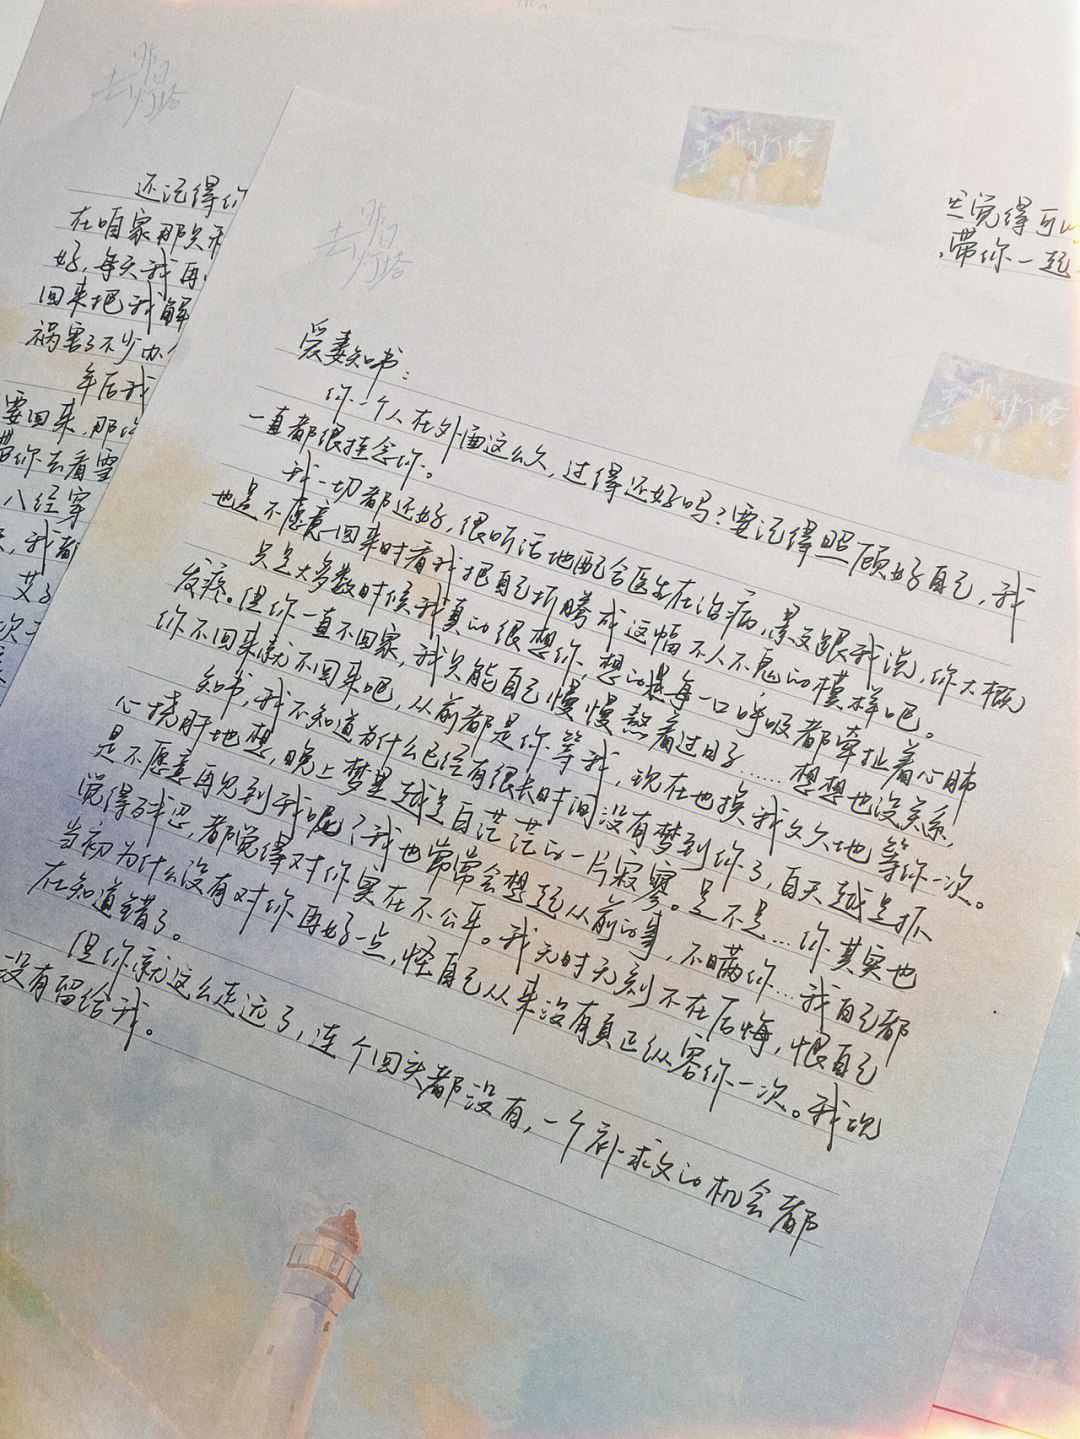 昨日
去灯塔
还记得你
在咱家那只
好,每天我再
回来把我解
祸害了不少
年后我
要回来,那
带你去看雪
八经穿
我都
昨日
去灯塔
昨日灯塔
只觉得可以
带你一起
昨日灯塔
爱妻知书:
你一个人在外面这么久,过得还好吗?要记得照顾好自己,我
一直都很挂念你。
我一切都还好,很听话地配合医生在治病,景文跟我说,你大概
也是不愿意回来时看我把自己折腾成这幅不人不鬼的模样吧。
只是大多数时候我真的很想你,想的是每一口呼吸都牵扯着心肺
发疼。但你一直不回家,我只能自己慢慢熬着过日子……想想也没关系,
你不回来就不回来吧,从前都是你等我,现在也换我久久地等你一次。
知书,我不知道为什么已经有很长时间没有梦到你了,白天越是抓
心挠肝地想,晚上梦里越是白茫茫的一片寂寥。是不是…你其实也
是不愿意再见到我呢?我也常常会想起从前的事,不瞒你…我自己都
觉得残忍,都觉得对你实在不公平。我无时无刻不在后悔,恨自己
当初为什么没有对你再好一点,怪自己从来没有真正纵容你一次。我现
在知道错了。
但你就这么走远了,连个回头都没有,一个补救的机会都
没有留给我。